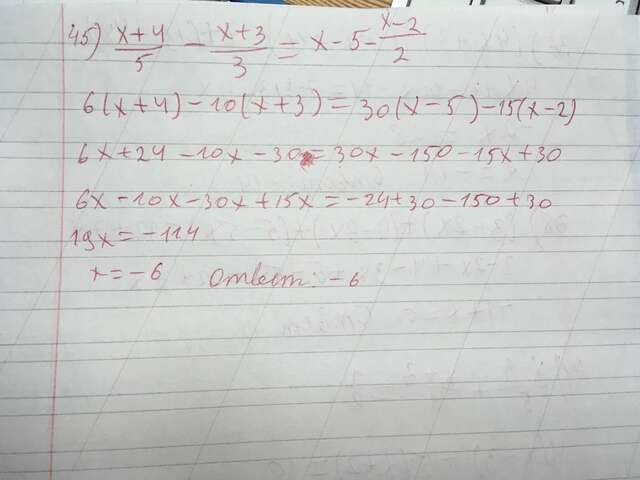 45) (x+4)/5 - (x+3)/3 = x-5-(x-2)/2
6(x+4)-10(x+3)=30(x-5)-15(x-2)
6x+24-10x-30=30x-150-15x+30
6x-10x-30x+15x=-24+30-150+30
19x=-114
x=-6 Ответ: -6